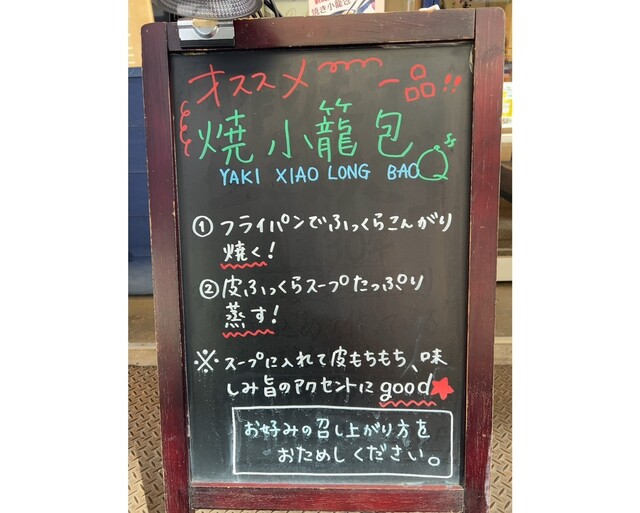 焼き小籠包
オススメ 一品!!
焼小籠包
YAKI XIAO LONG BAO
① フライパンでふっくらこんがり
焼く!
② 皮ふっくらスープたっぷり
蒸す!
※ スープに入れて皮もちもち、味
しみ旨のアクセントにgood★
お好みの召し上がり方を
おためしください。